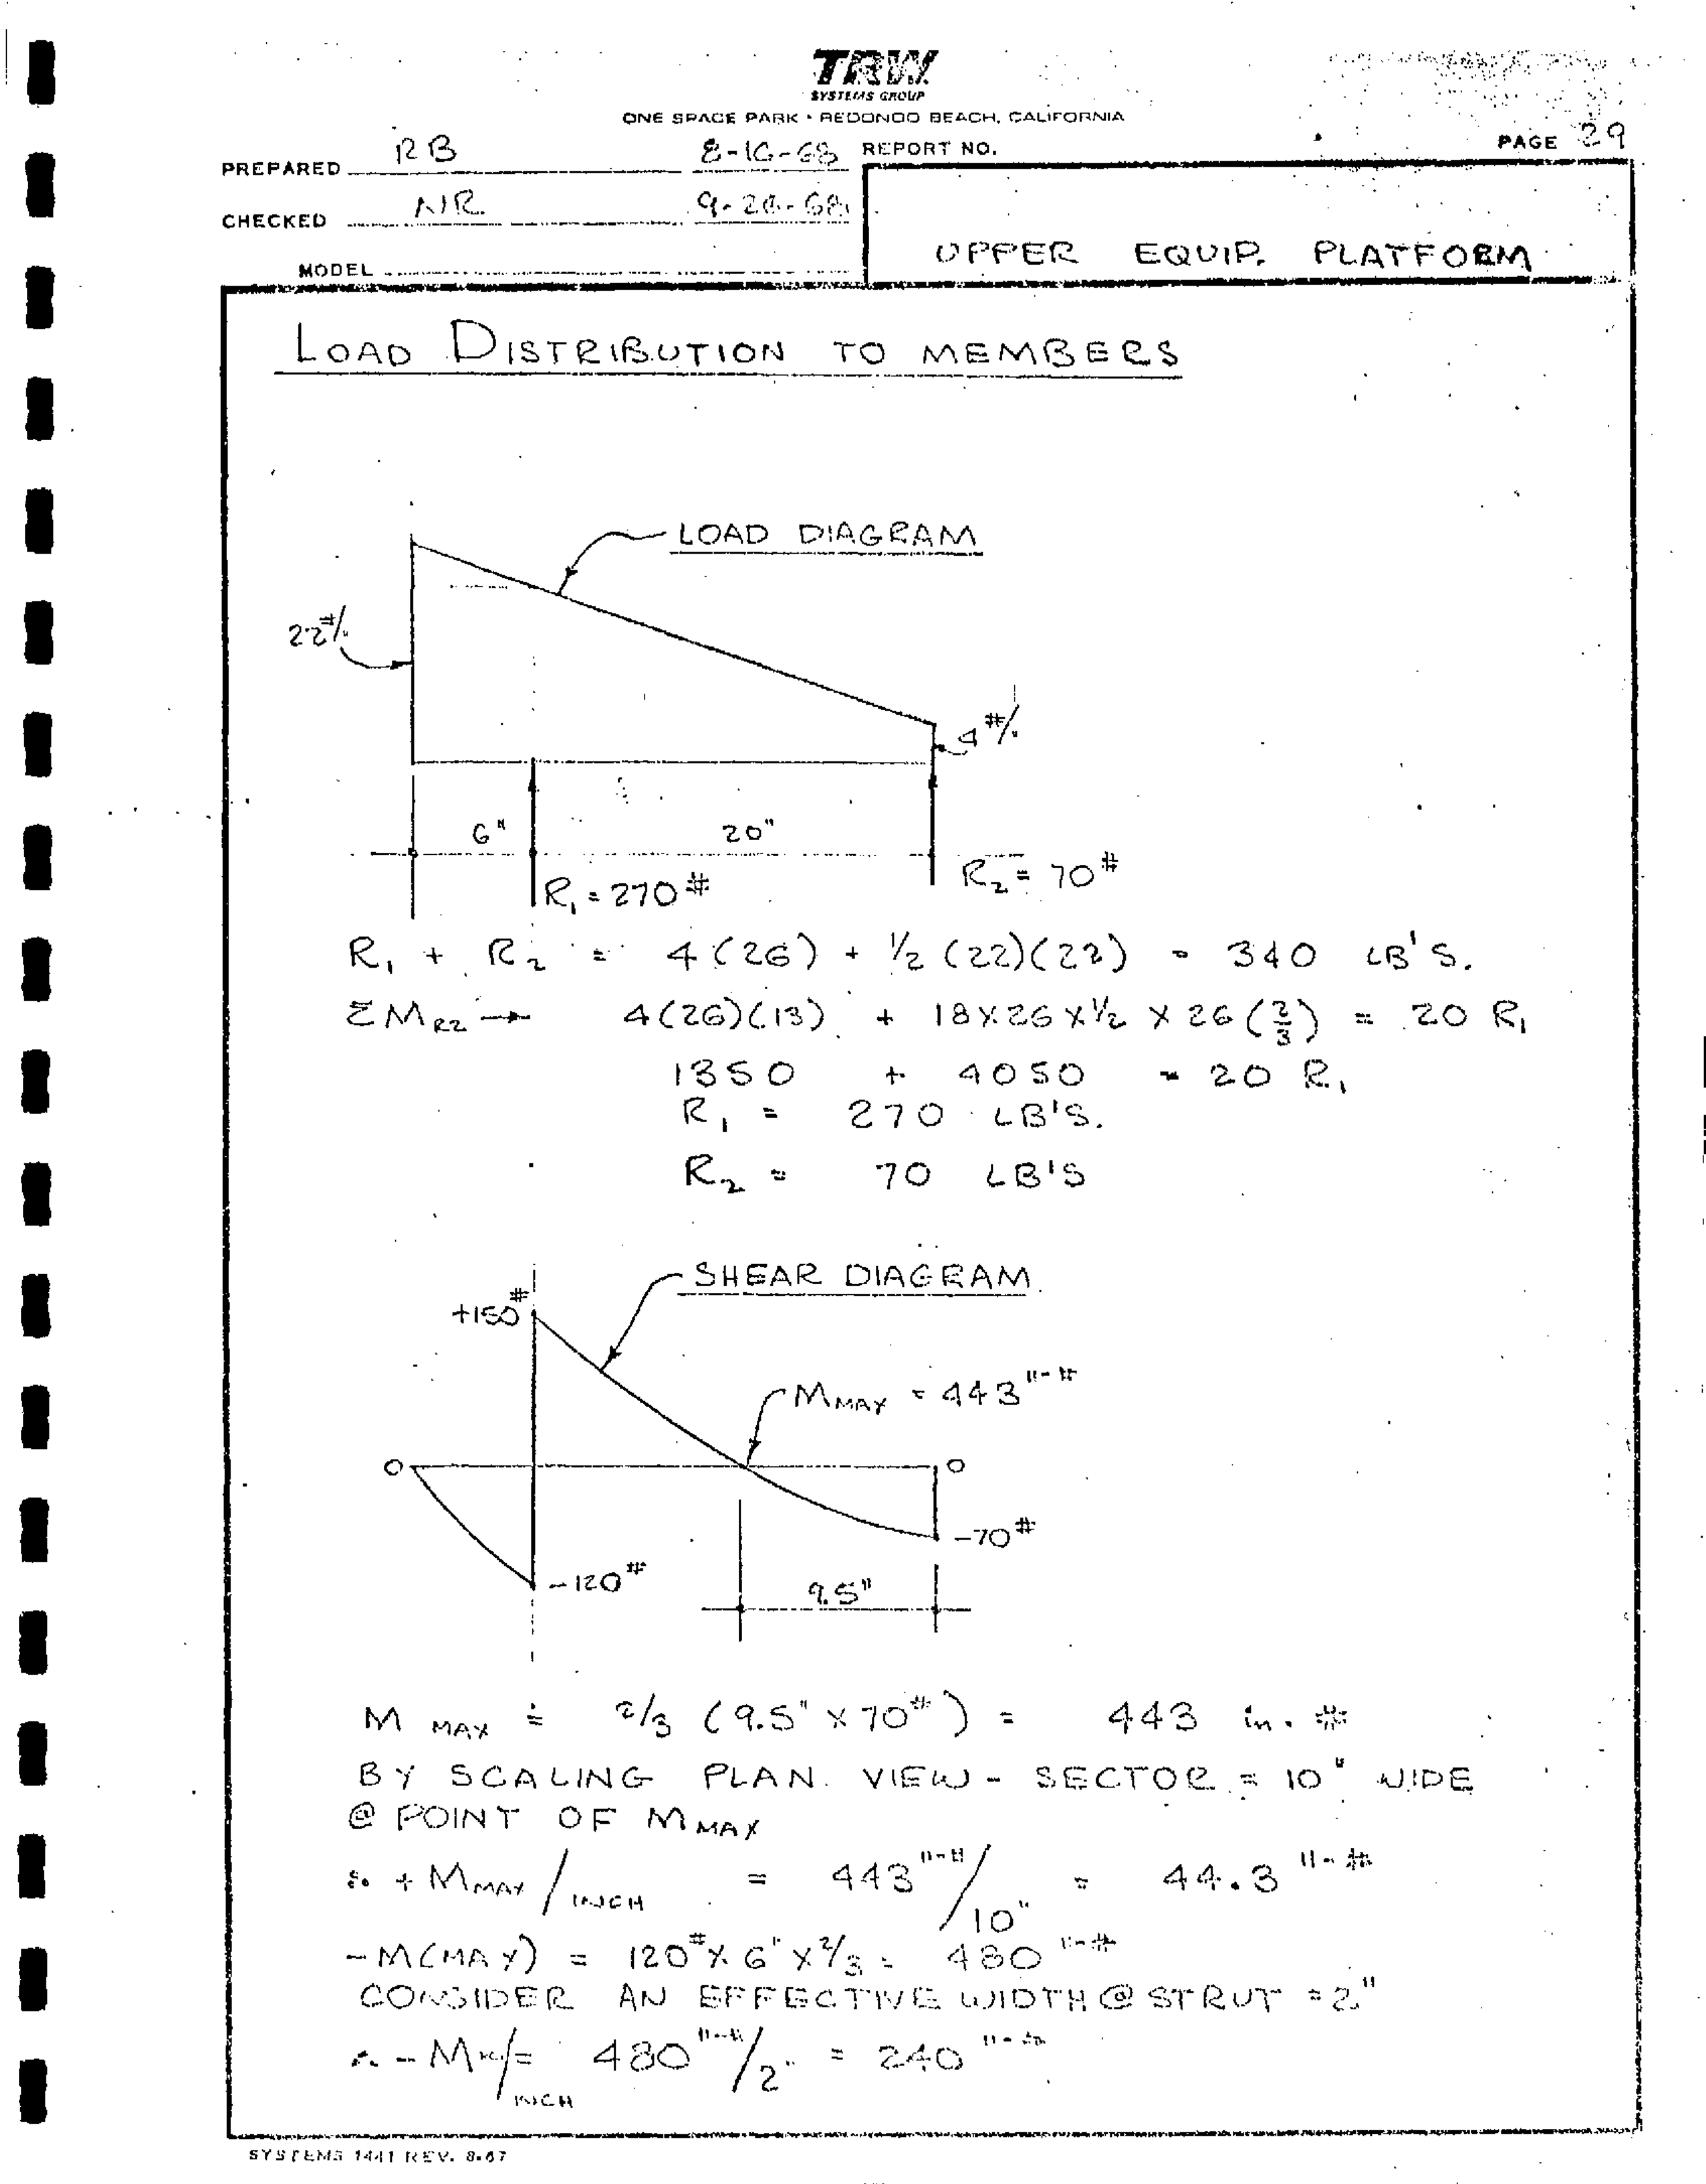 TRW
SYSTEMS GROUP
ONE SPACE PARK • REDONDO BEACH, CALIFORNIA
PREPARED RB 8-16-68 REPORT NO. PAGE 29
CHECKED NR 9-20-68
MODEL
UPPER EQUIP. PLATFORM
LOAD DISTRIBUTION TO MEMBERS
LOAD DIAGRAM
22#/
4#/
6" 20"
R1 = 270# R2 = 70#
R1 + R2 = 4(26) + 1/2 (22)(22) = 340 LB'S.
ΣM R2 → 4(26)(13) + 18X26X1/2 X 26(2/3) = 20 R1
1350 + 4050 = 20 R1
R1 = 270 LB'S.
R2 = 70 LB'S
SHEAR DIAGRAM
+150#
MMAX = 443"-#
0 0
-70#
-120#
9.5"
M MAX = 2/3 (9.5" X 70#) = 443 in. #
BY SCALING PLAN VIEW - SECTOR = 10" WIDE
@ POINT OF MMAX
∴ + MMAX/INCH = 443"-#/10" = 44.3"-#
-M(MAX) = 120# X 6" X 2/3 = 480"-#
CONSIDER AN EFFECTIVE WIDTH @ STRUT = 2"
∴ - M /INCH = 480"-#/2" = 240"-#
SYSTEMS 1441 REV. 8-67